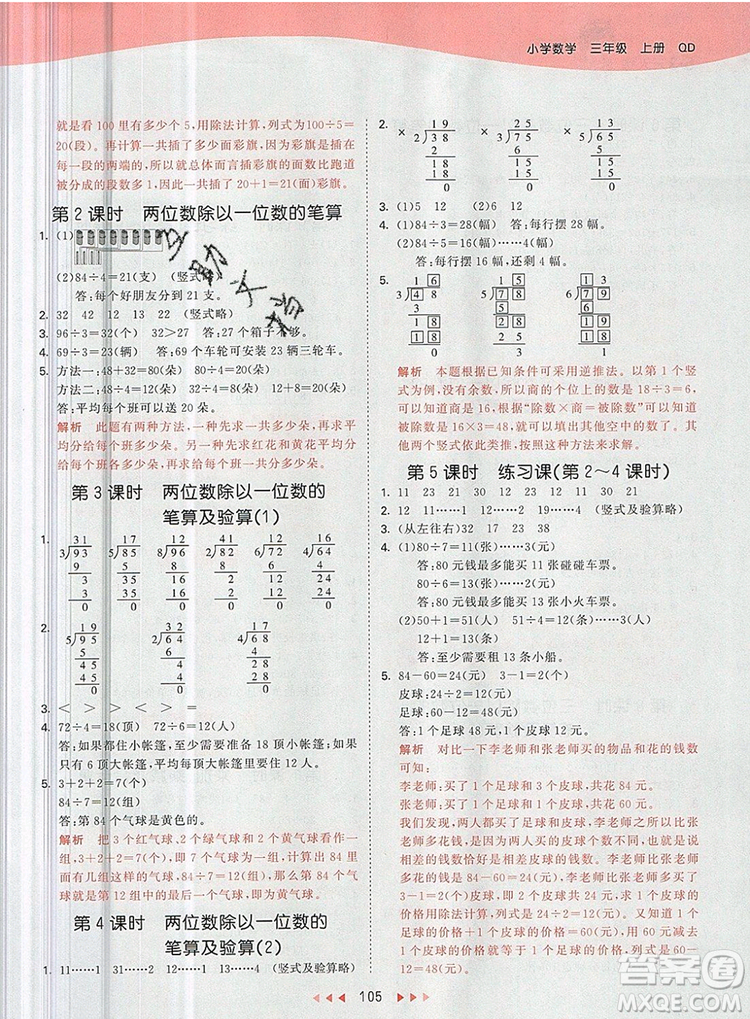 小学数学 三年级 上册 QD
就是看 100 里有多少个 5,用除法计算,列式为100÷5=
20(段)。再计算一共插了多少面彩旗。因为彩旗插在
每一段的两端,所以就总体而言插彩旗的面数比跑道
被分成的段数多 1,所以一共插了 20+1=21(面)彩旗。
第 2 课时 两位数除以一位数的笔算
1. (1)
(2)84÷4=21(支) (竖式略)
答:每个好朋友分到 21 支。
2. 32 42 12 13 22 (竖式略)
3. 96÷3=32(个) 32>27 答:27 个箱子不够。
4. 69÷3=23(辆) 答:69 个车轮可安装 23 辆三轮车。
5. 方法一:48+32=80(朵) 80÷4=20(朵)
方法二:48÷4=12(朵) 32÷4=8(朵) 12+8=20(朵)
答:平均每个班可以送 20 朵。
解析 此题有两种方法,一种先求一共多少朵,再求平
均分给每个班多少朵。另一种先求红花和黄花平均
分给每个班多少朵,再求一共分给每个班多少朵。
第 3 课时 两位数除以一位数的
笔算及验算(1)
1. 31 17 43 28 16
3)93 5)85 2)86 2)56 6)96
9 5 8 4 6
3 35 6 16 36
3 35 6 16 36
0 0 0 0 0
2. 19 32 13
5)95 2)64 6)78
5 6 6
45 4 18
45 4 18
0 0 0
3. < > < > > >
4. 72÷4=18(顶) 72÷6=12(顶)
答:如果都住小帐篷,至少需要 18 顶小帐篷;如果
只有 6 顶大帐篷,至少还需要 12 顶小帐篷。
5. 3+2+2=7(个)
84÷7=12(组)
答:第 84 个气球是黄色的。
解析 把 3 个红气球、2 个绿气球和 2 个黄气球看作一
组,3+2+2=7(个),即 7 个气球为一组。计算出 84 里
有几组这样的气球,84÷7=12(组),那么第 84 个气球
就是第 12 组中的最后一个气球,所以为黄气球。
第 4 课时 两位数除以一位数的
笔算及验算(2)
1. 11……1 31……2 12……4 13……4 (竖式及验算略)
2. × 19 × 13 × 15
2)38 5)65 6)90
2 5 6
18 15 30
18 15 30
0 0 0
3. (1)5 12 (2)6 12
4. (1)84÷3=28(幅) 答:每行摆 28 幅。
(2)84÷5=16(幅)……4(幅)
答:每行摆 16 幅,还剩 4 幅。
解析 本题根据已知条件可采用逆推法。以第 1 个竖
式为例,没有余数,所以商的个位上的数是 18÷3=6,
可以知道商是 16。根据“除数×商=被除数”可以知道
被除数是 16×3=48,就可以填出其他空中的数了。其
他两个竖式依此类推,按照这种方法来求解。
第 5 课时 练习课(第 2～4 课时)
1. 11 23 21 30 12 11 30 21
2. 12 16……2 12……2 19……4 (竖式及验算略)
3. (从左往右)32 17 23 38
4. (1)80÷7=11(张)……3(元)
答:80 元钱最多能买 11 张碰碰车票。
80÷6=13(张)……2(元)
答:80 元钱最多能买 13 张小火车票。
(2)1+50=51(人) 51÷4=12(条)……3(人)
12+1=13(条)
答:至少需要租 13 条小船。
5. 84-60=24(元) 3-1=2(个)
皮球:24÷2=12(元)
足球:60-12=48(元)
答:1 个足球 48 元,1 个皮球 12 元。
解析 对比一下李老师和张老师买的物品和花的钱数
可知:
李老师:买了 1 个足球和 3 个皮球,共花 84 元。
张老师:买了 1 个足球和 1 个皮球,共花 60 元。
我们发现,两人都买了 1 个足球,但李老师比张老师
多花了钱,是因为两人买的皮球个数不同,多出来的
相差的钱数恰好就是相差的皮球的钱数。李老师比
张老师多花 84-60=24(元),李老师比张老师多买了
3-1=2(个)皮球,用相差的钱数÷相差的个数=1 个
皮球的价格,用算式表示为 24÷2=12(元)。知道了 1
个皮球的价格,又知道 1 个足球和 1 个皮球的价格和
为 60 元,所以用 1 个足球和 1 个皮球的价格和减去 1
个皮球的价格就等于 1 个足球的价格,即 60-
12=48(元)。
105
答案圈
MXQE.COM